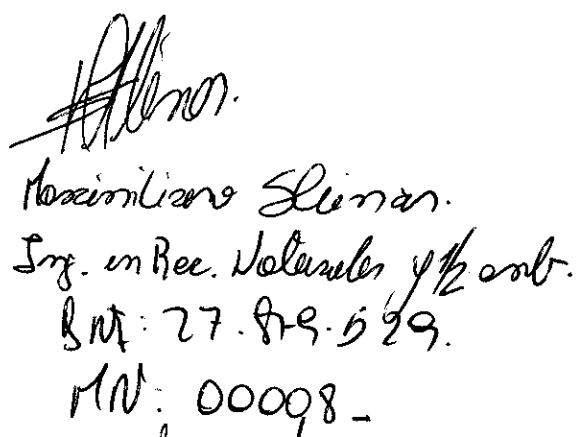 Maximiliano Sliman.
Ing. en Rec. Naturales y M amb.
DNI: 27.879.529.
MN: 00098-